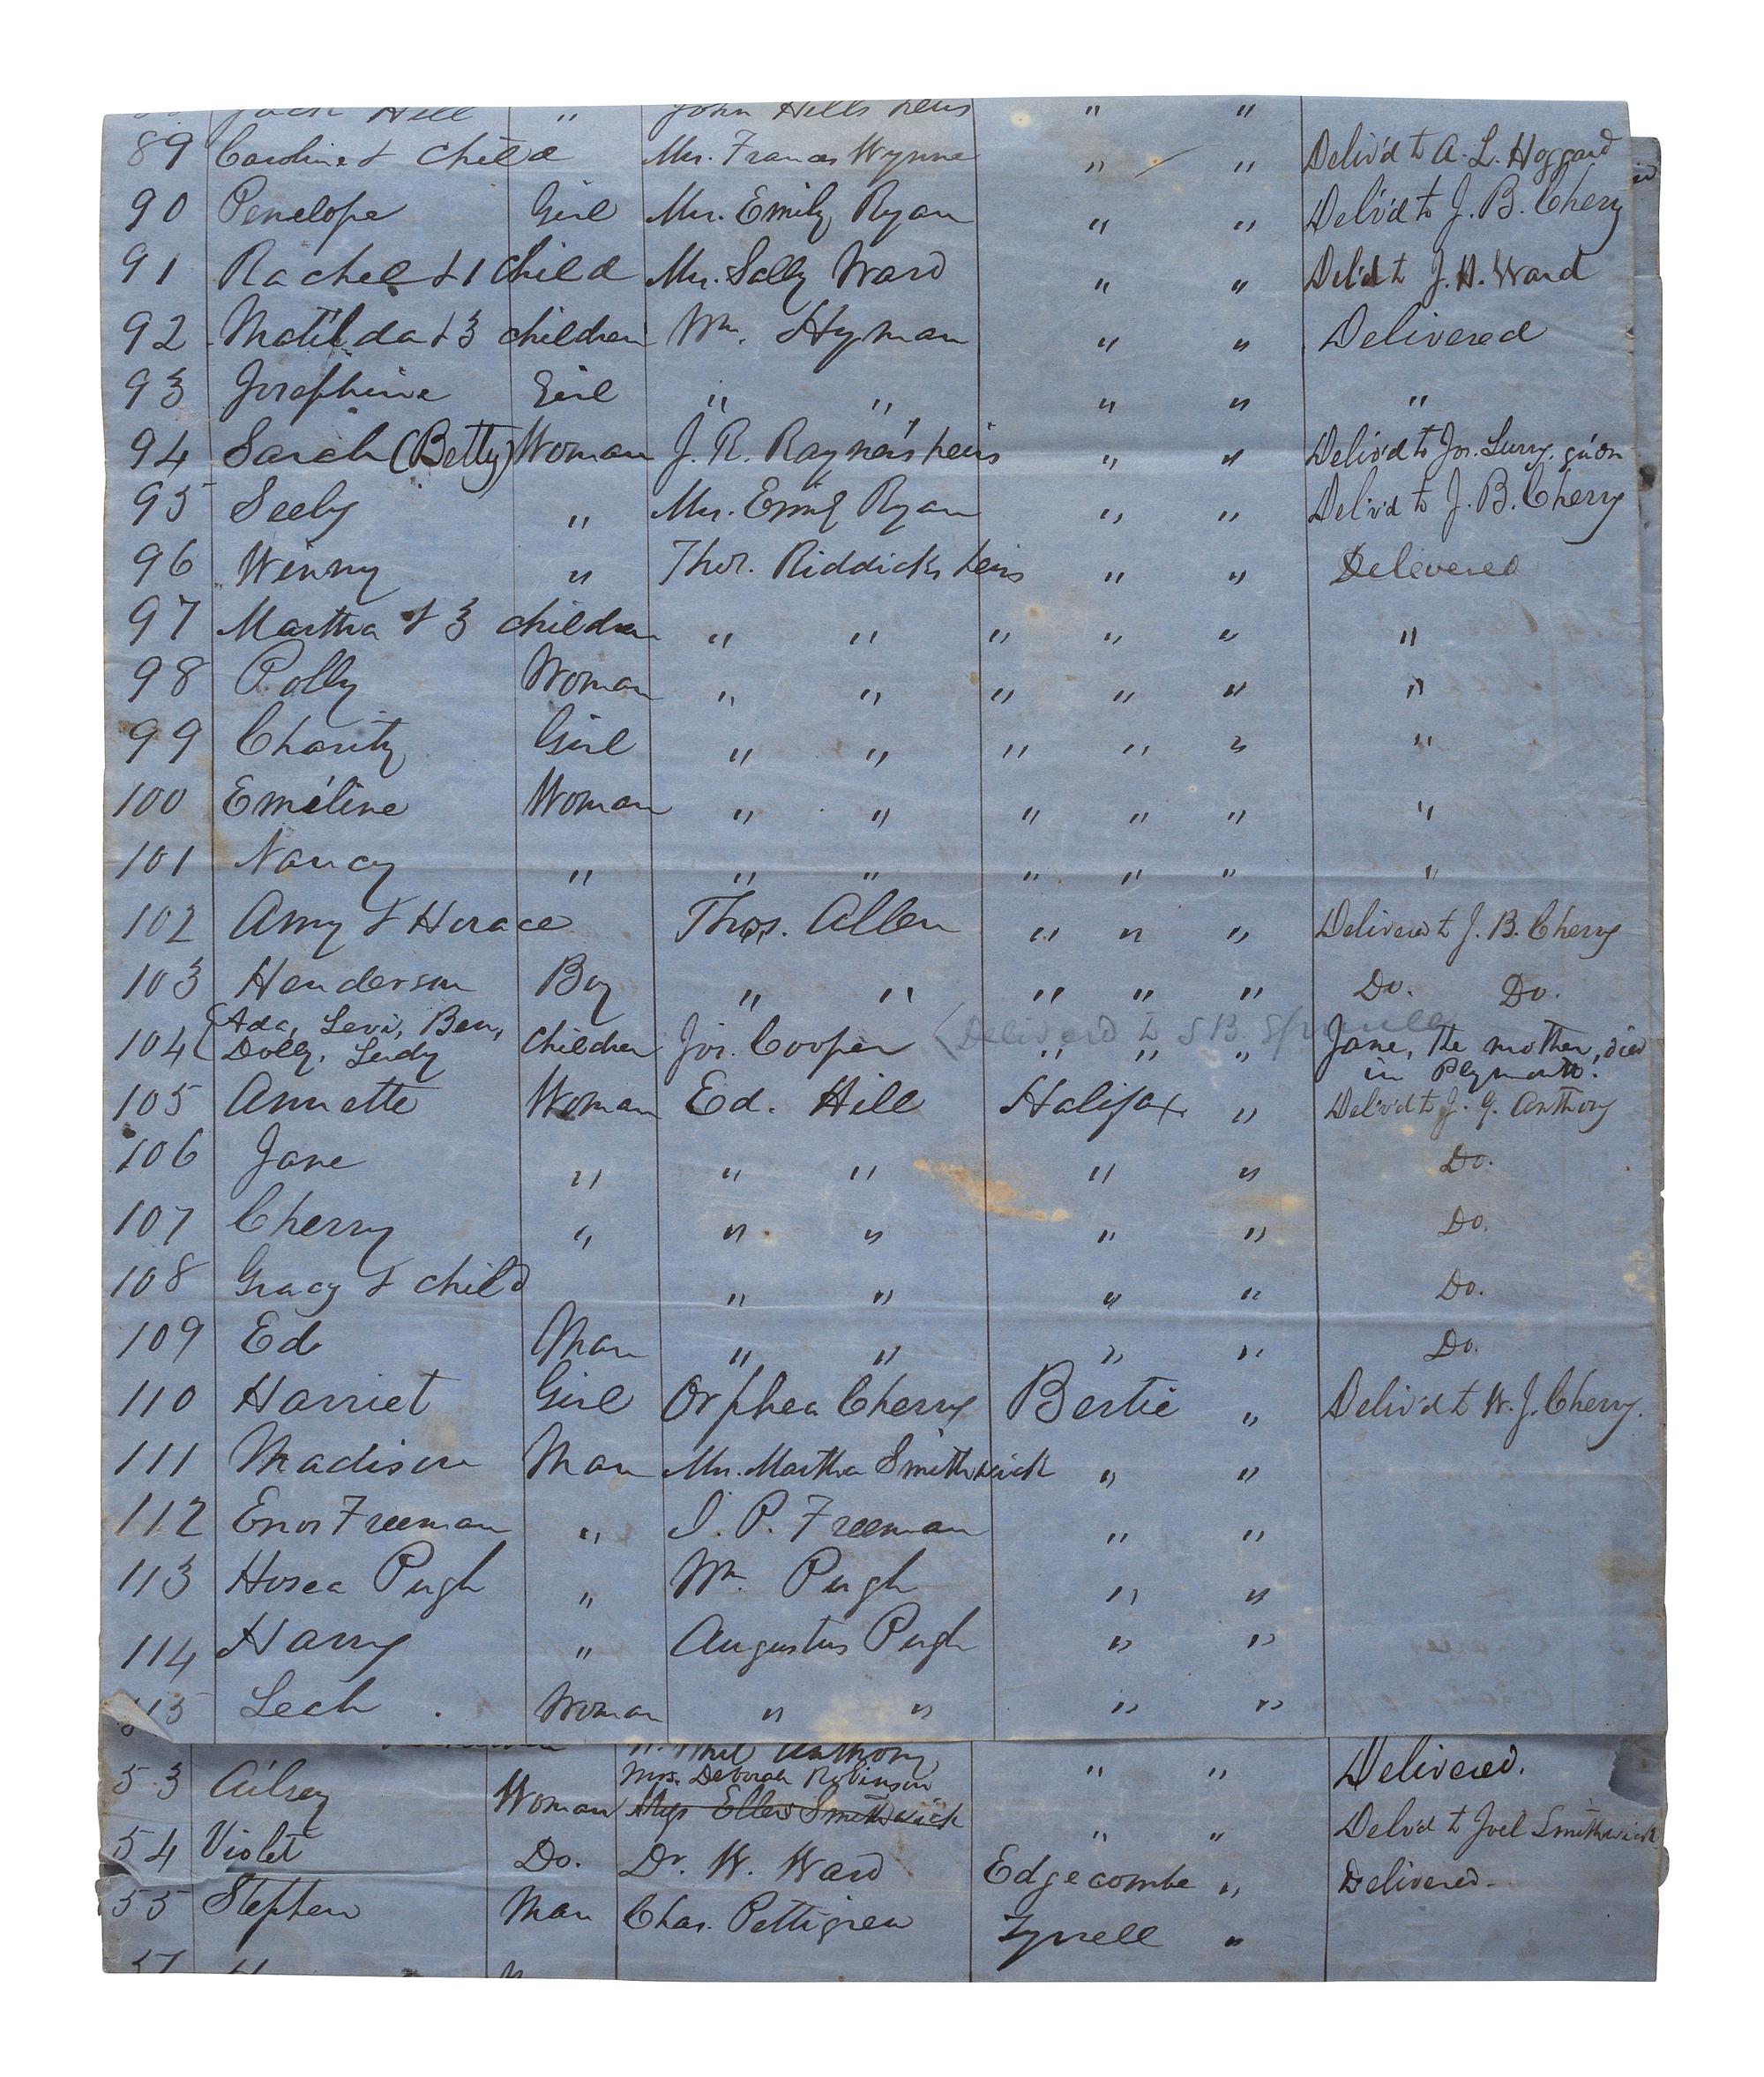 Jack Hill " John Hills heirs " "
89 Caroline & child Mrs. Frances Wynne " " Deliv'd to A. L. Hoggard
90 Penelope Girl Mrs. Emily Ryan " " Deliv'd to J. B. Cherry
91 Rachel & 1 child Mrs. Sally Ward " " Deliv'd to J. H. Ward
92 Matilda & 3 children Wm. Hyman " " Delivered
93 Josephine Girl " " " " "
94 Sarah (Betty) Woman J. R. Rayner's heirs " " Deliv'd to Jos. gu'dn
95 Seely " Mrs. Emily Ryan " " Deliv'd to J. B. Cherry
96 Winny " Thos. Riddicks heirs " " Delivered
97 Martha & 3 children " " " " " "
98 Polly Woman " " " " " "
99 Charity Girl " " " " " "
100 Emiline Woman " " " " " "
101 Nancy " " " " " " "
102 Amy & Horace Thos. Allen " " " Delivered to J. B. Cherry
103 Henderson Boy " " " " " Do. Do.
104 { Ada, Levi, Ben, Dolly, Judy children Jos. Cooper (Delivered to S B Spruill " " " Jane, the mother, died
in Plymouth.
105 Annette Woman Ed. Hill Halifax " Deliv'd to J. J. Anthony
106 Jane " " " " " Do.
107 Cherry " " " " " Do.
108 Gracy & child " " " " Do.
109 Ed Man " " " " Do.
110 Harriet Girl Orphea Cherry Bertie " Deliv'd to W. J. Cherry.
111 Madison Man Mrs. Martha Smithwick " "
112 Enos Freeman " J. P. Freeman " "
113 Hosea Pugh " Wm. Pugh " "
114 Harry " Augustus Pugh " "
115 Leah Woman " " " "
Whit Anthony " " Delivered.
Mrs. Deborah Robinson
53 Ailsey Woman Mrs Ellen Smithwick " " Deliv'd to Joel Smithwick
54 Violet Do. Dr. W. Ward Edgecombe " Delivered.
55 Stephen Man Chas. Pettigrew Tyrrell "